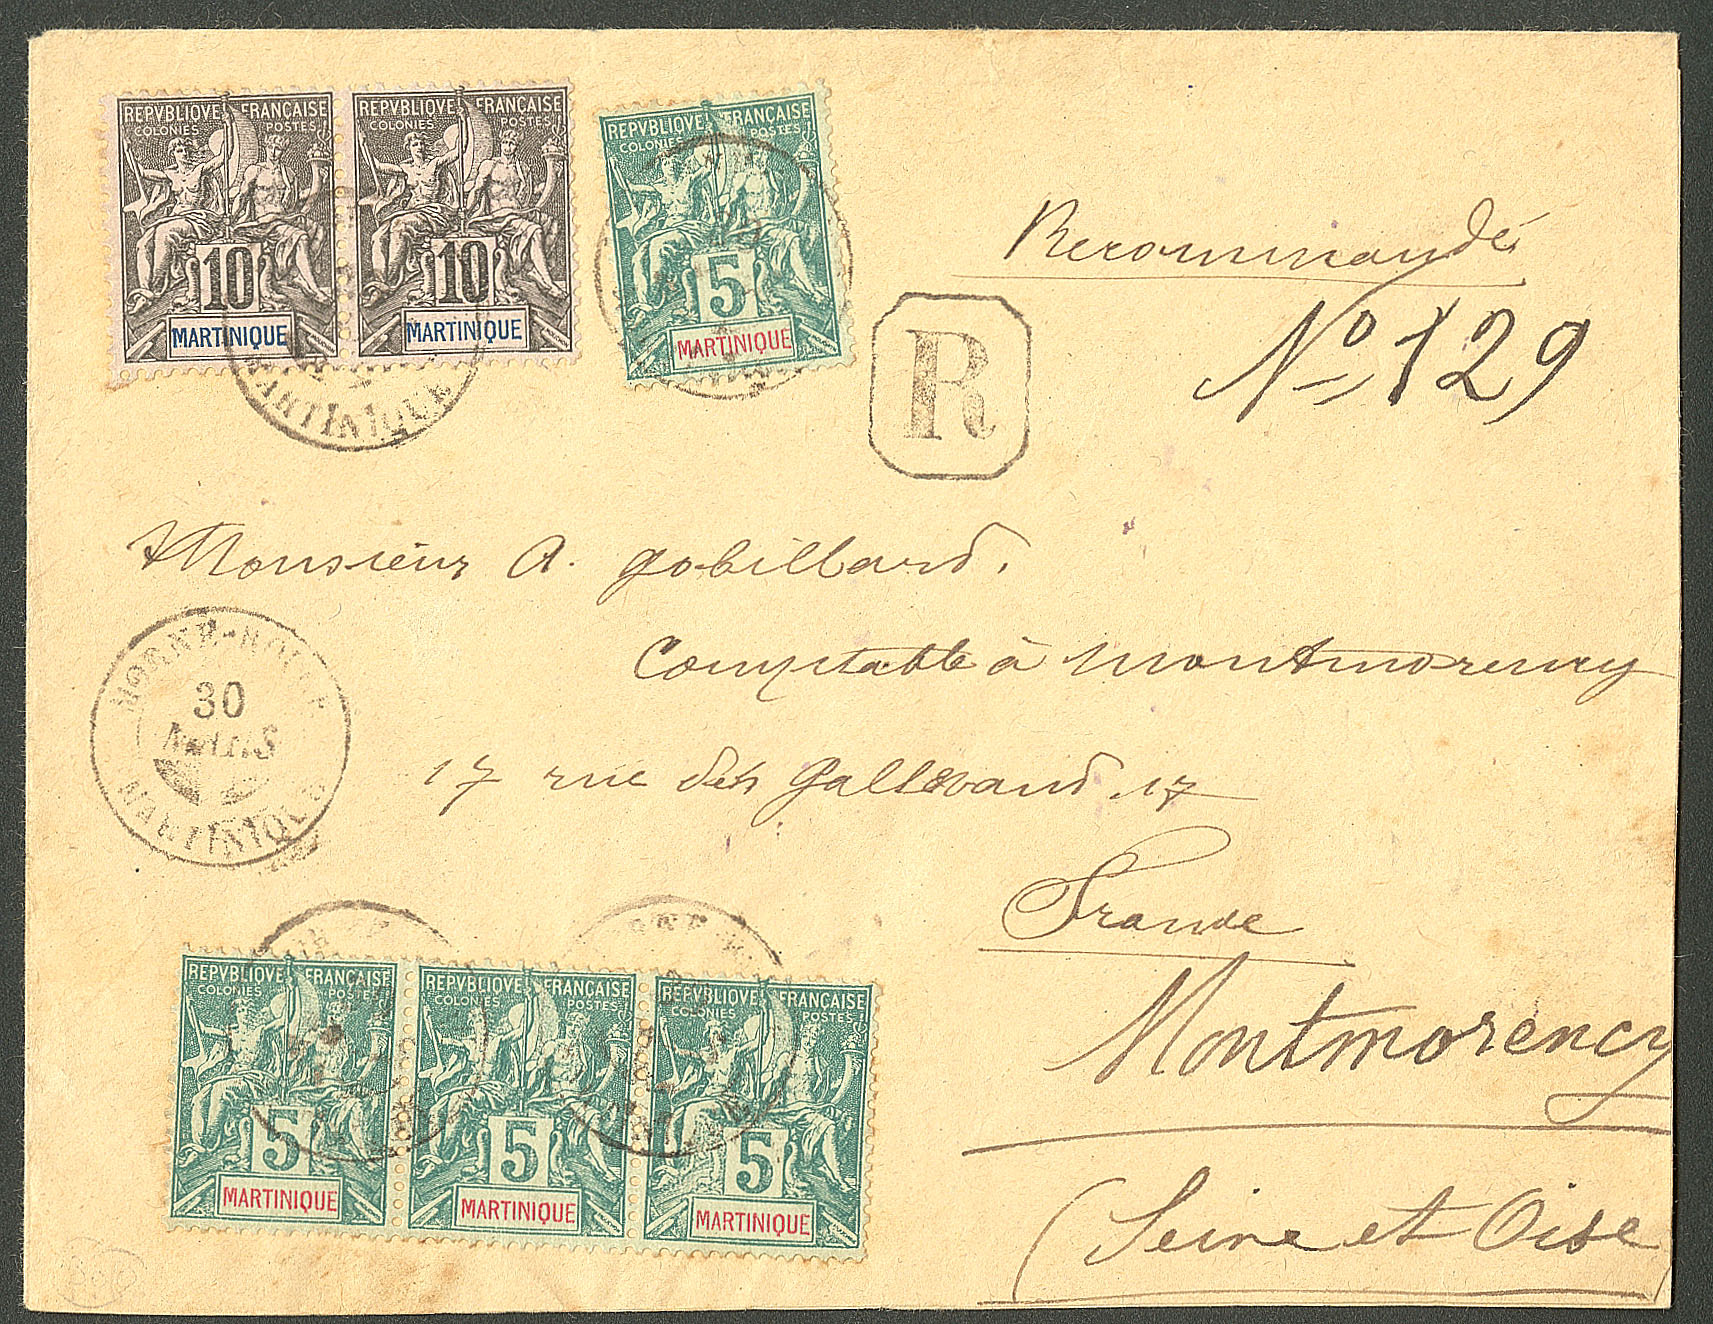 REPVBLIQVE FRANÇAISE
COLONIES POSTES
10
MARTINIQUE
REPVBLIQVE FRANÇAISE
COLONIES POSTES
10
MARTINIQUE
REPVBLIQVE FRANÇAISE
COLONIES POSTES
5
MARTINIQUE
MARTINIQUE
Recommandé
R
No 129
Monsieur A. Gobillard.
Comptable à Montmorency
17 rue des 17
MORNE-ROUGE
30
MARS
MARTINIQUE
France
Montmorency
(Seine et Oise
REPVBLIQVE FRANÇAISE
COLONIES POSTES
5
MARTINIQUE
REPVBLIQVE FRANÇAISE
COLONIES POSTES
5
MARTINIQUE
REPVBLIQVE FRANÇAISE
COLONIES POSTES
5
MARTINIQUE